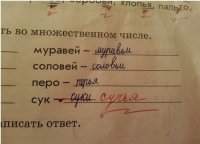 хлопья, пальто,
ть во множественном числе.
муравей – муравьи
соловей – соловьи
перо – перья
сук – суки сучья
аписать ответ.